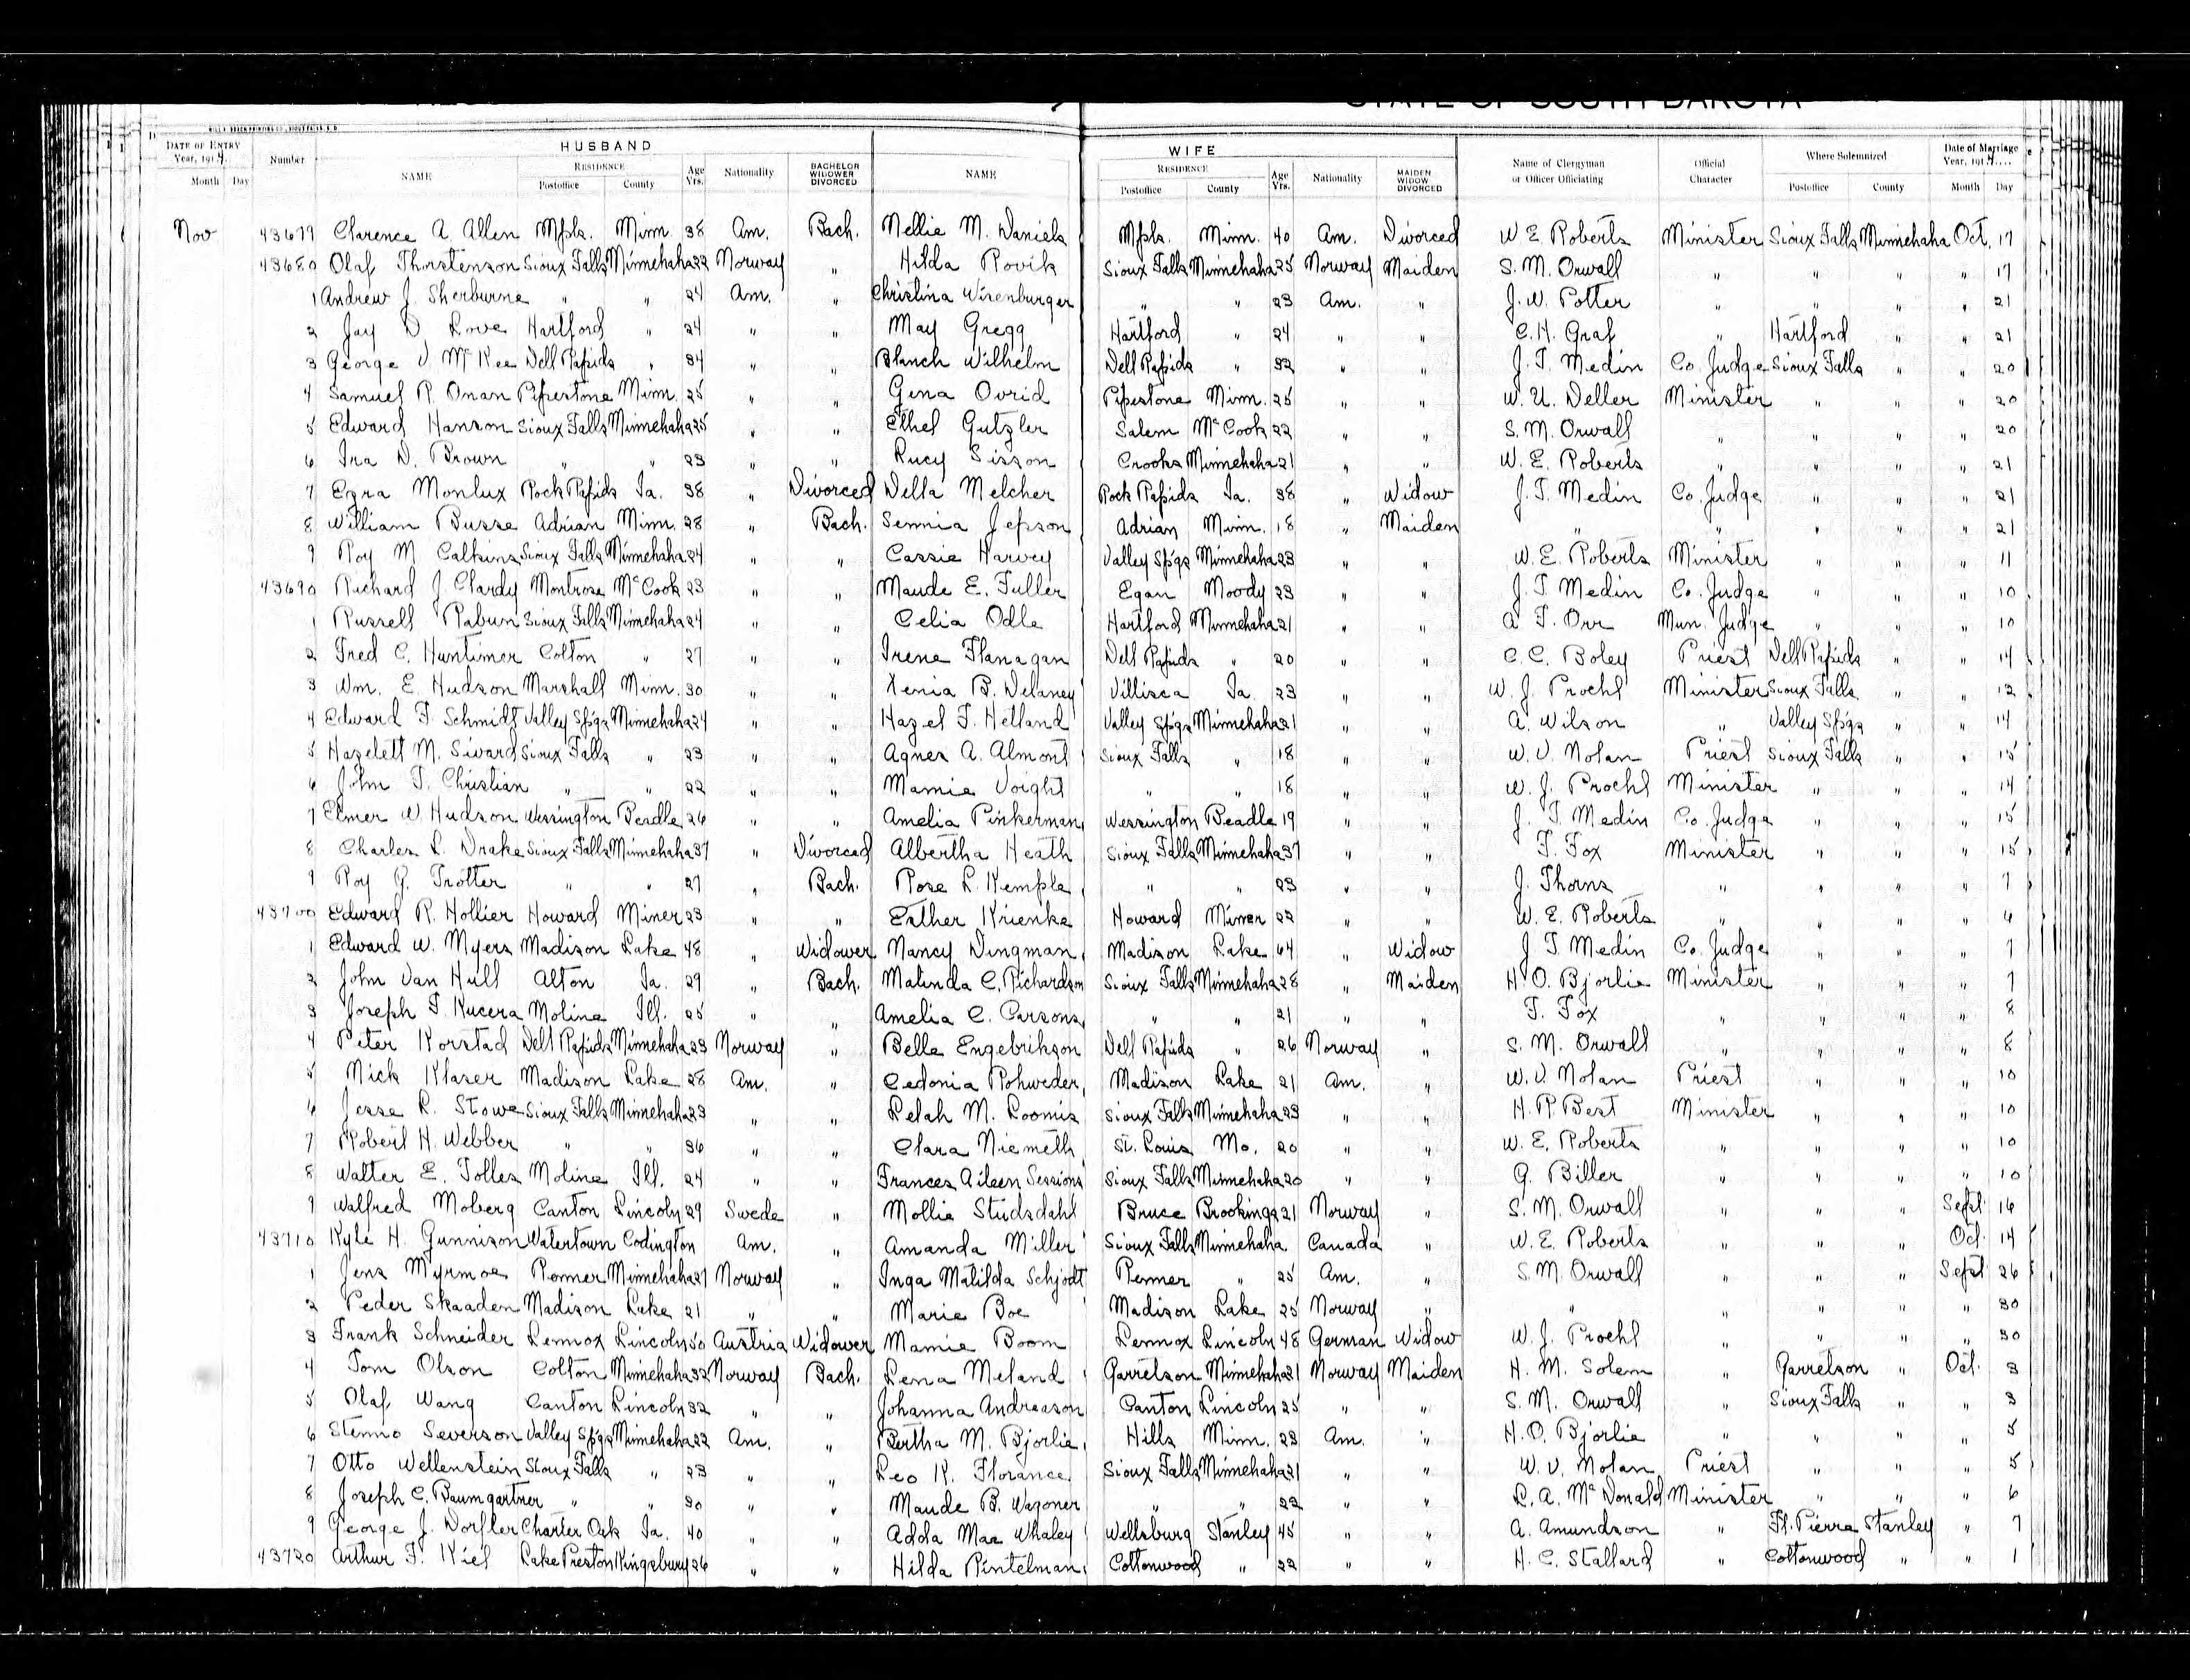 STATE OF SOUTH DAKOTA
HUSBAND WIFE
DATE OF ENTRY Year, 1914. Number NAME RESIDENCE Age Yrs. Nationality BACHELOR WIDOWER DIVORCED NAME RESIDENCE Age Yrs. Nationality MAIDEN WIDOW DIVORCED Name of Clergyman or Officer Officiating Official Character Where Solemnized Date of Marriage Year, 1914
Month Day Postoffice County Postoffice County Postoffice County Month Day
Nov 43679 Clarence A. Allen Mpls. Minn. 38 Am. Bach. Nellie M. Daniels Mpls. Minn. 40 Am. Divorced W E Roberts Minister Sioux Falls Minnehaha Oct. 17
43680 Olaf Thorstenson Sioux Falls Minnehaha 22 Norway " Hilda Rovik Sioux Falls Minnehaha 25 Norway Maiden S. M. Orwall " " " " 17
1 Andrew J. Sherburne " " 24 Am. " Christina Wisenburger " " 23 Am. " J. W. Potter " " " " 21
2 Jay D Love Hartford " 24 " " May Gregg Hartford " 24 " " C. H. Graf " Hartford " " 21
3 George V McKee Dell Rapids " 34 " " Blanch Wilhelm Dell Rapids " 32 " " J. T. Medin Co. Judge Sioux Falls " " 20
4 Samuel R. Onan Pipestone Minn. 25 " " Gena Ovrid Pipestone Minn. 25 " " W. U. Deller Minister " " " 20
5 Edward Hanson Sioux Falls Minnehaha 25 " " Ethel Gutzler Salem McCook 22 " " S. M. Orwall " " " " 20
6 Ira D. Brown " " 23 " " Lucy Sisson Crooks Minnehaha 21 " " W. E. Roberts " " " " 21
7 Ezra Monlux Rock Rapids Ia. 38 " Divorced Della Melcher Rock Rapids Ia. 38 " Widow J. T. Medin Co. Judge " " " 21
8 William Busse Adrian Minn. 28 " Bach. Sennia Jepson Adrian Minn. 18 " Maiden " " " " " 21
9 Roy M Calkins Sioux Falls Minnehaha 24 " " Cassie Harvey Valley Spgs Minnehaha 23 " " W. E. Roberts Minister " " " 11
43690 Richard J. Clardy Montrose McCook 23 " " Maude E. Fuller Egan Moody 23 " " J. T Medin Co. Judge " " " 10
1 Russell Rabun Sioux Falls Minnehaha 24 " " Celia Odle Hartford Minnehaha 21 " " A T. Orr Mun. Judge " " " 10
2 Fred C. Huntimer Colton " 27 " " Irene Flanagan Dell Rapids " 20 " " C. C. Boley Priest Dell Rapids " " 14
3 Wm. E. Hudson Marshall Minn. 30 " " Xenia B. Delaney Villisca Ia. 23 " " W. J. Proehl Minister Sioux Falls " " 12
4 Edward F. Schmidt Valley Spgs Minnehaha 24 " " Hazel F. Helland Valley Spgs Minnehaha 21 " " A. Wilson " Valley Spgs " " 14
5 Hazelett M. Sivard Sioux Falls " 23 " " Agnes A. Almont Sioux Falls " 18 " " W. V. Nolan Priest Sioux Falls " " 15
6 John T. Christian " " 22 " " Mamie Voight " " 18 " " W. J. Proehl Minister " " " 14
7 Elmer W. Hudson Wessington Beadle 26 " " Amelia Pinkerman Wessington Beadle 19 " " J. T Medin Co. Judge " " " 15
8 Charles L. Drake Sioux Falls Minnehaha 37 " Divorced Albertha Heath Sioux Falls Minnehaha 37 " " F. Fox Minister " " " 15
9 Roy G. Trotter " " 27 " Bach. Rose L. Kemple " " 23 " " J. Thorns " " " " 7
43700 Edward R. Hollier Howard Miner 23 " " Esther Krienke Howard Miner 22 " " W. E. Roberts " " " " 6
1 Edward W. Myers Madison Lake 48 " Widower Nancy Dingman Madison Lake 64 " Widow J T Medin Co. Judge " " " 7
2 John Van Hull Alton Ia. 29 " Bach. Malinda C. Richardson Sioux Falls Minnehaha 28 " Maiden H. O. Bjorlie Minister " " " 7
3 Joseph F. Kucera Moline Ill. 25 " " Amelia C. Parsons " " 21 " " F. Fox " " " " 8
4 Peter Korstad Dell Rapids Minnehaha 23 Norway " Belle Engebrikson Dell Rapids " 26 Norway " S. M. Orwall " " " " 8
5 Nick Klaser Madison Lake 28 Am. " Cedonia Rohweder Madison Lake 21 Am. " W. V. Nolan Priest " " " 10
6 Jesse L. Stowe Sioux Falls Minnehaha 23 " " Lelah M. Loomis Sioux Falls Minnehaha 23 " " H. R. Best Minister " " " 10
7 Robert H. Webber " " 36 " " Clara Niemeth St. Louis Mo. 20 " " W. E. Roberts " " " " 10
8 Walter E. Tolles Moline Ill. 24 " " Frances Aileen Sessions Sioux Falls Minnehaha 20 " " G. Biller " " " " 10
9 Walfred Moberg Canton Lincoln 29 Swede " Mollie Studsdahl Bruce Brookings 21 Norway " S. M. Orwall " " " Sept 16
43710 Kyle H. Gunnison Watertown Codington Am. " Amanda Miller Sioux Falls Minnehaha Canada " W. E. Roberts " " " Oct. 14
1 Jens Myrmoe Renner Minnehaha 27 Norway " Inga Matilda Schjodt Renner " 25 Am. " S. M. Orwall " " " Sept 26
2 Peder Skaaden Madison Lake 21 " " Marie Boe Madison Lake 25 Norway " " " " " " 30
3 Frank Schneider Lennox Lincoln 50 Austria Widower Mamie Boom Lennox Lincoln 48 German Widow W. J. Proehl " " " " 30
4 Tom Olson Colton Minnehaha 32 Norway Bach. Lena Meland Garretson Minnehaha 31 Norway Maiden H. M. Solem " Garretson " Oct. 3
5 Olaf Wang Canton Lincoln 32 " " Johanna Andreason Canton Lincoln 25 " " S. M. Orwall " Sioux Falls " " 3
6 Stenno Severson Valley Spgs Minnehaha 22 Am. " Bertha M. Bjorlie Hills Minn. 23 Am. " H. O. Bjorlie " " " " 5
7 Otto Wellenstein Sioux Falls " 23 " " Leo K. Florance Sioux Falls Minnehaha 21 " " W. V. Nolan Priest " " " 5
8 Joseph C. Baumgartner " " 30 " " Maude B. Wagoner " " 22 " " L. A. McDonald Minister " " " 6
9 George J. Dorfler Charter Oak Ia. 40 " " Adda Mae Whaley Wellsburg Stanley 45 " " A. Amundson " Ft. Pierre Stanley " 7
43720 Arthur F. Kiel Lake Preston Kingsbury 26 " " Hilda Rintelman Cottonwood " 22 " " H. C. Stallard " Cottonwood " " 1